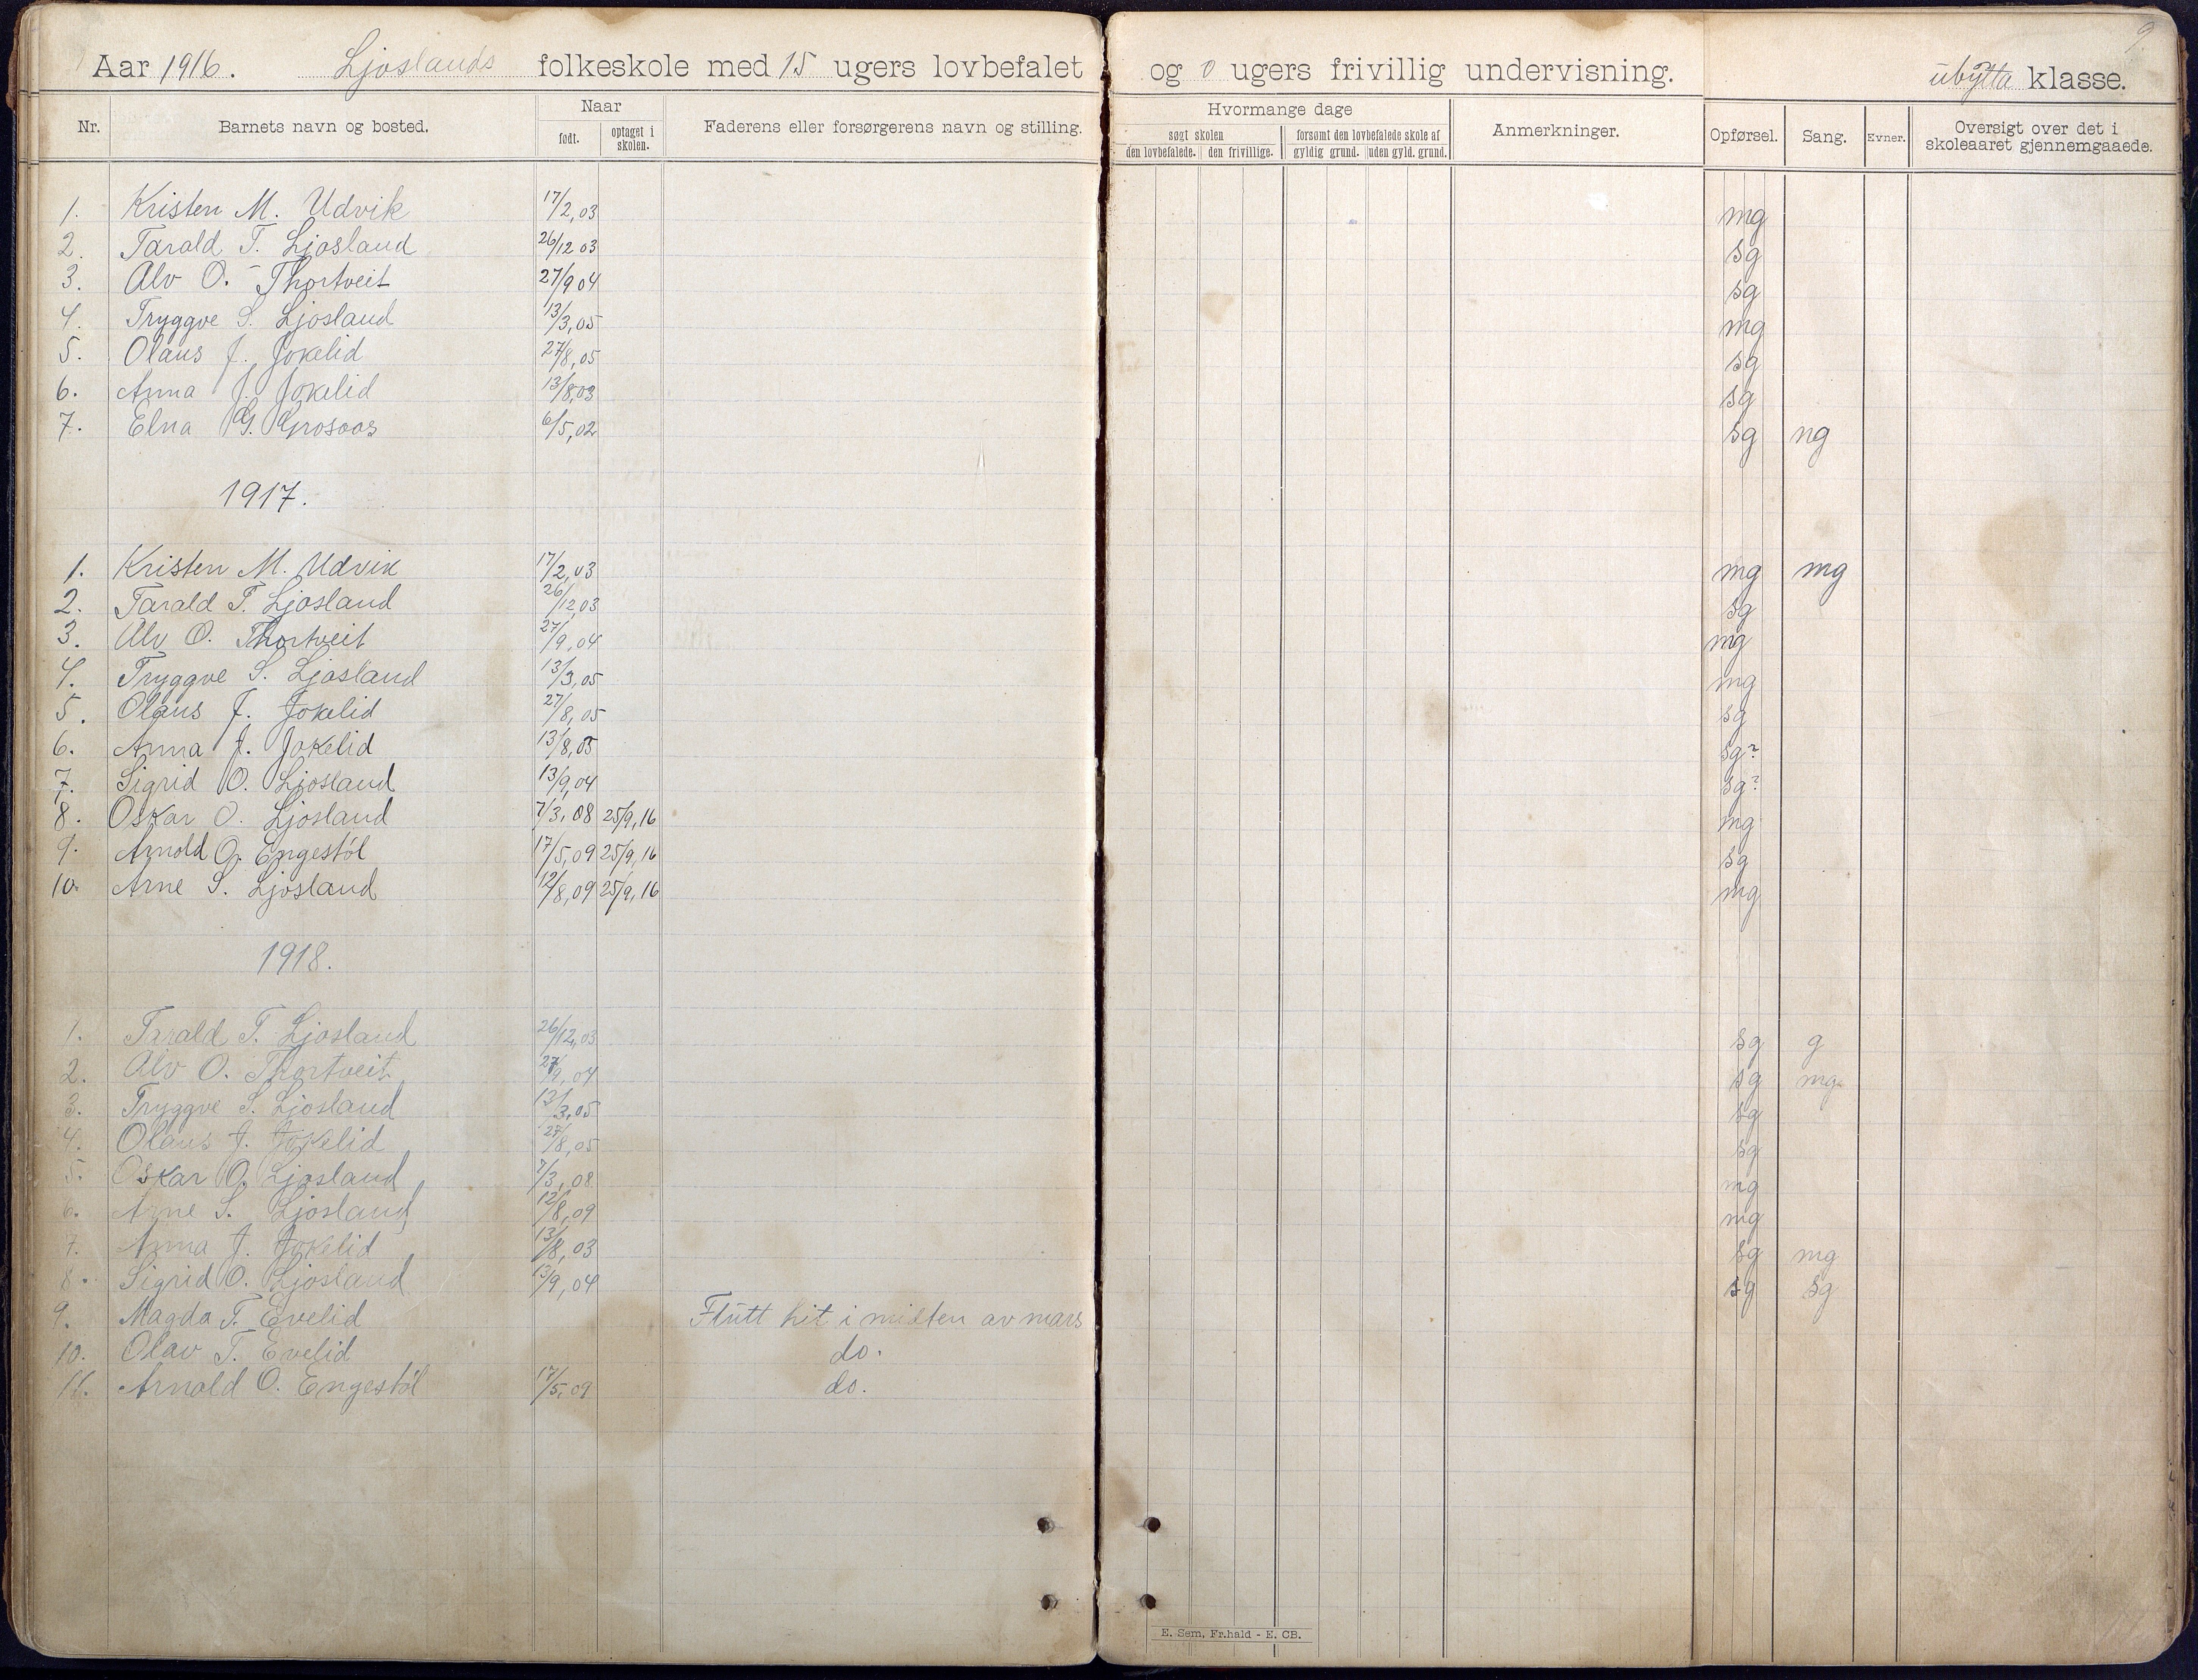 Aar 1916. Ljoslands folkeskole med 15 ugers lovbefalet og 0 ugers frivillig undervisning. ubytta klasse.
9
Nr. Barnets navn og bosted. Naar født. optaget i skolen. Faderens eller forsørgerens navn og stilling. Hvormange dage søgt skolen den lovbefalede. den frivillige. forsømt den lovbefalede skole af gyldig grund. uden gyld. grund. Anmerkninger. Opførsel. Sang. Evner. Oversigt over det i skoleaaret gjennemgaaede.
1. Kristen M. Udvik 17/2,03 mg
2. Tarald T. Ljosland 26/12 03 sg
3. Alv O. Thortveit 27/9 04 sg
4. Tryggve S. Ljosland 13/3,05 mg
5. Olaus J. Jokelid 27/8,05 sg
6. Anna J. Jokelid 13/8,03 sg
7. Elna G. Grosaas 6/5,02 sg ng
1917.
1. Kristen M. Udvik 17/2,03 mg mg
2. Tarald T. Ljosland 26/12,03 sg
3. Alv O. Thortveit 27/9,04 mg
4. Tryggve S. Ljosland 13/3,05 mg
5. Olaus J. Jokelid 27/8,05 sg
6. Anna J. Jokelid 13/8,03 sg?
7. Sigrid O. Ljosland 13/9,04 sg?
8. Oskar O. Ljosland 7/3,08 25/9,16 mg
9. Arnold O. Engestøl 17/5,09 25/9,16 sg
10. Arne S. Ljosland 12/8,09 25/9,16 mg
1918.
1. Tarald T. Ljosland 26/12,03 sg g
2. Alv O. Thortveit 27/9,04 sg mg.
3. Tryggve S. Ljosland 13/3,05 sg
4. Olaus J. Jokelid 27/8,05 sg
5. Oskar O. Ljosland 7/3,08 mg
6. Arne S. Ljosland 12/8,09 mg
7. Anna J. Jokelid 13/8,03 sg mg
8. Sigrid O. Ljosland 13/9,04 sg sg
9. Magda T. Evelid Flutt hit i midten av mars
10. Olav T. Evelid do.
11. Arnold O. Engestøl 17/5,09 do.
E. Sem, Fr.hald - E. CB.